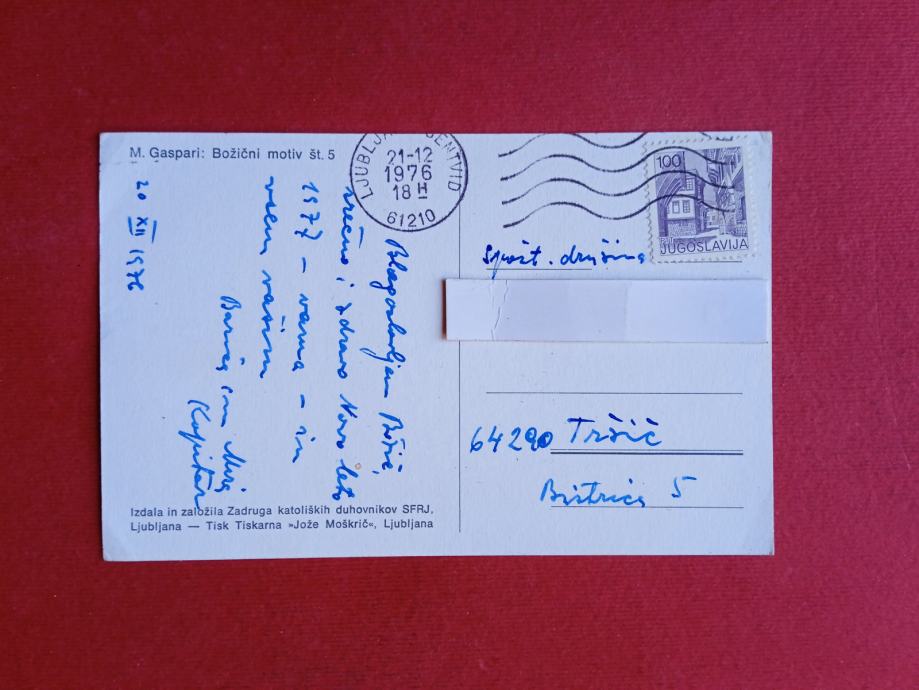 M. Gaspari: Božični motiv št. 5
20 XII 1976
Blagoslovljen Božič,
srečno i zdravo Novo leto
1977 – vama – in
vsem vašim
Mira
Kopitar
Izdala in založila Zadruga katoliških duhovnikov SFRJ,
Ljubljana — Tisk Tiskarna »Jože Moškrič«, Ljubljana
LJUBLJANA ŠENTVID
21-12
1976
18 H
61210
100
JUGOSLAVIJA
Spošt. družina
64290 Tržič
Bistrica 5